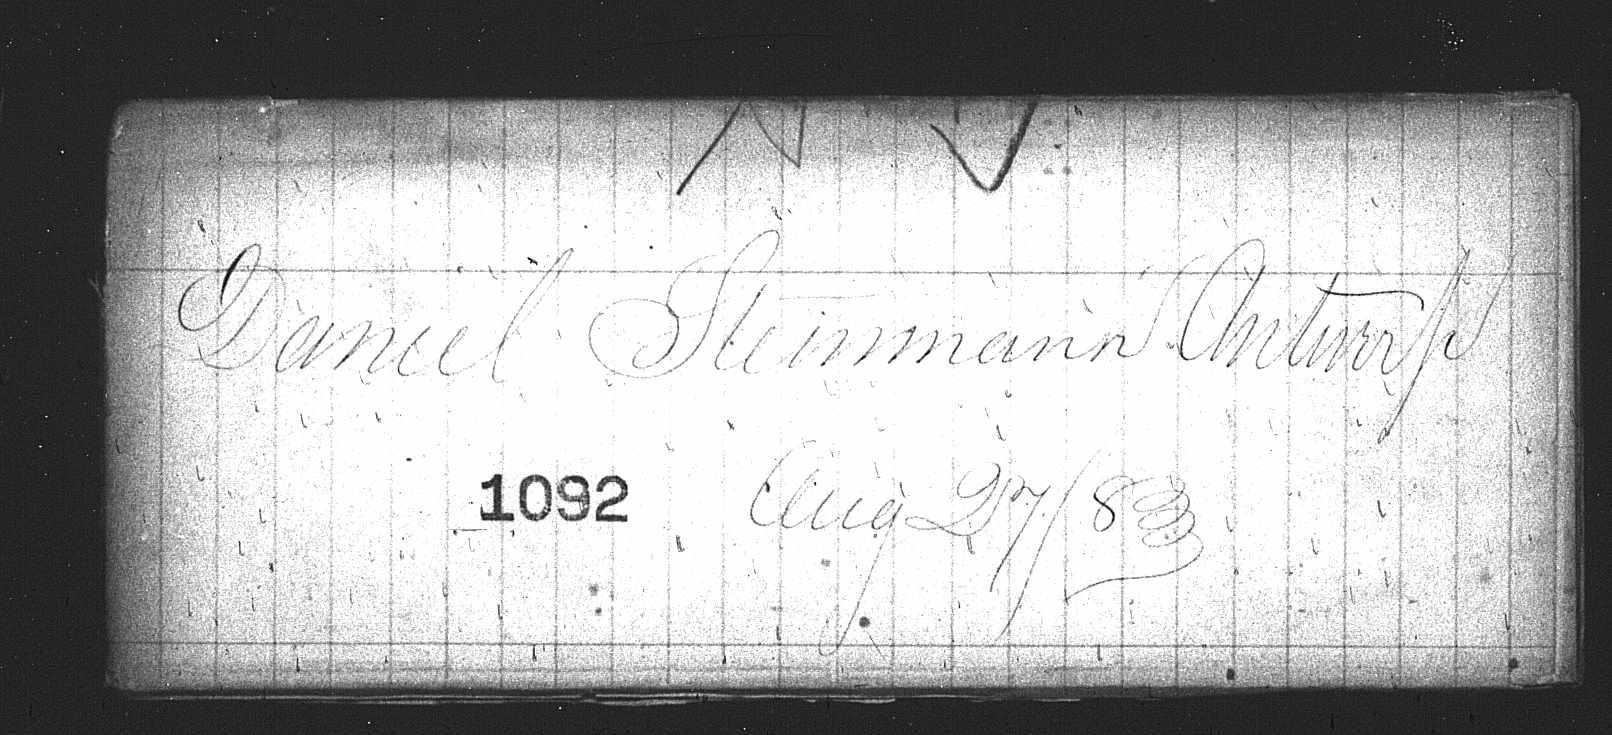 Daniel Steinmann Antwerp
1092 Aug 27/83